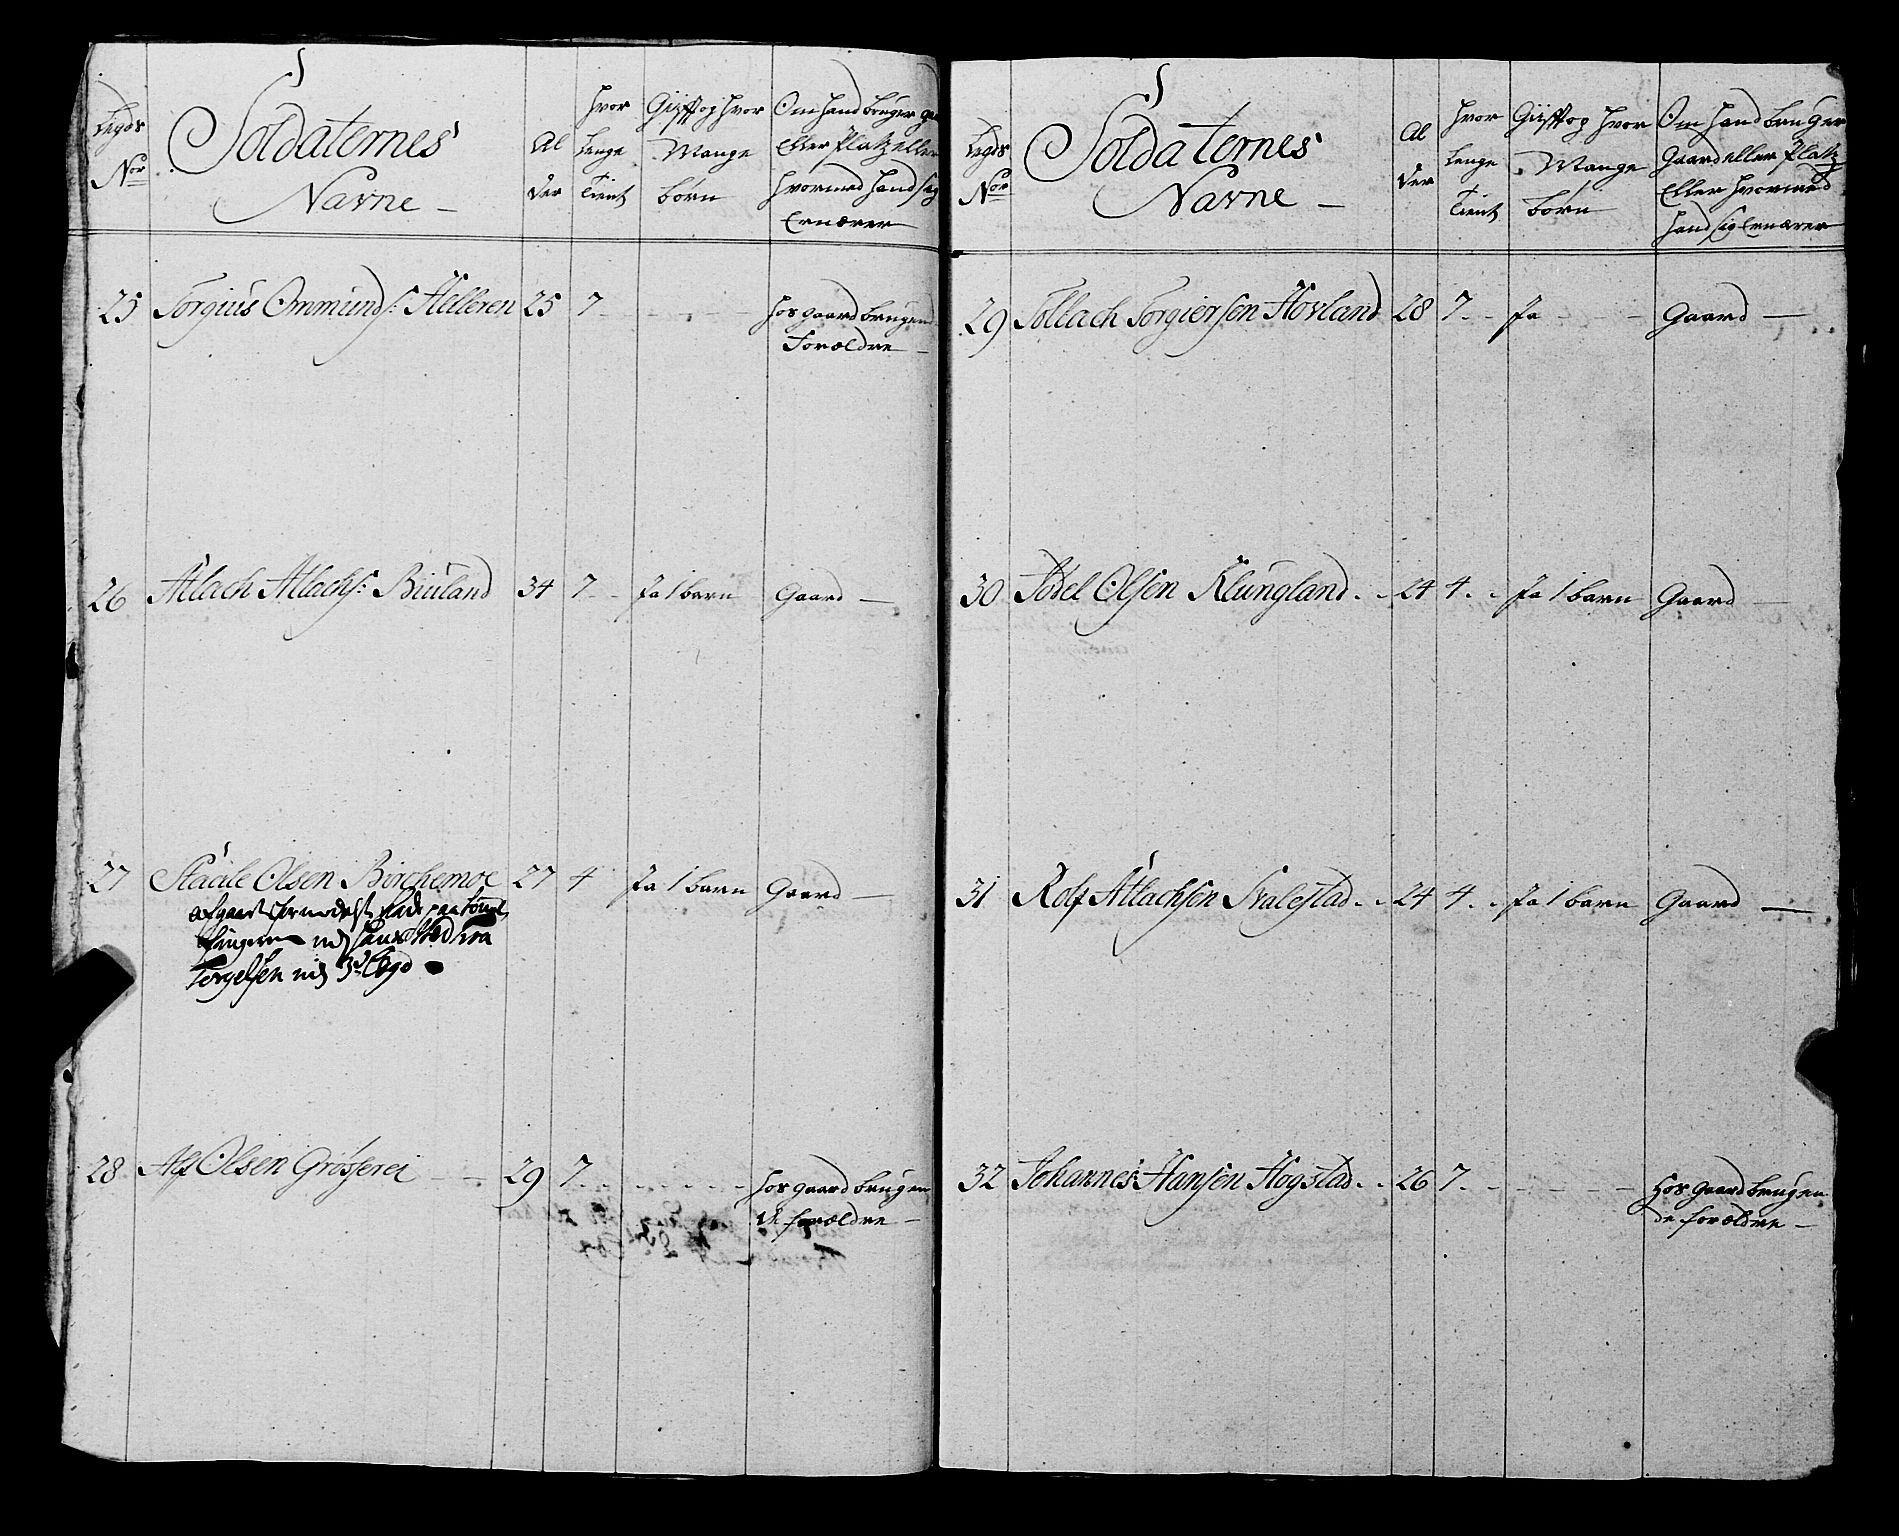 Legds
No.
Soldaternes
Navne
Al
der
Hvor
Lenge
Tient
Gifft og Hvor
Mange
børn
Om Hand bruger
Eller Platz eller
Hvormed Hand sig
Ernærer
25 Torgius Ommunds: Helleren 25 7 - - - - Hos gaard brugen
Forældre -
26 Atlach Atlachs: Biuland 34 7 - - Ja 1 barn Gaard -
27 Staale Olsen Birchemoe 27 4 Ja 1 barn Gaard -
afgaaet formedelst
fingeren
Torgelsen
28 Alf Olsen Grøsserei - - 29 7 - - - - Hos gaard brugen
de forældre -
Legds
No.
Soldaternes
Navne
Al
der
Hvor
Lenge
Tient
Gifft og Hvor
Mange
børn
Om Hand bruger
Gaard eller Platz
Eller Hvormed
Hand sig Ernærer
29 Tollach Torgiersen Hovland 28 7 - - Ja - - - Gaard -
30 Jødel Olsen Klungland - - 24 4 - - Ja 1 barn Gaard -
31 Rolf Atlachsen Svalestad - - 24 4 - - Ja 1 barn Gaard -
32 Johannes Hansen Høgstad - - 26 7 - - - - Hos Gaard brugen
de forældre -